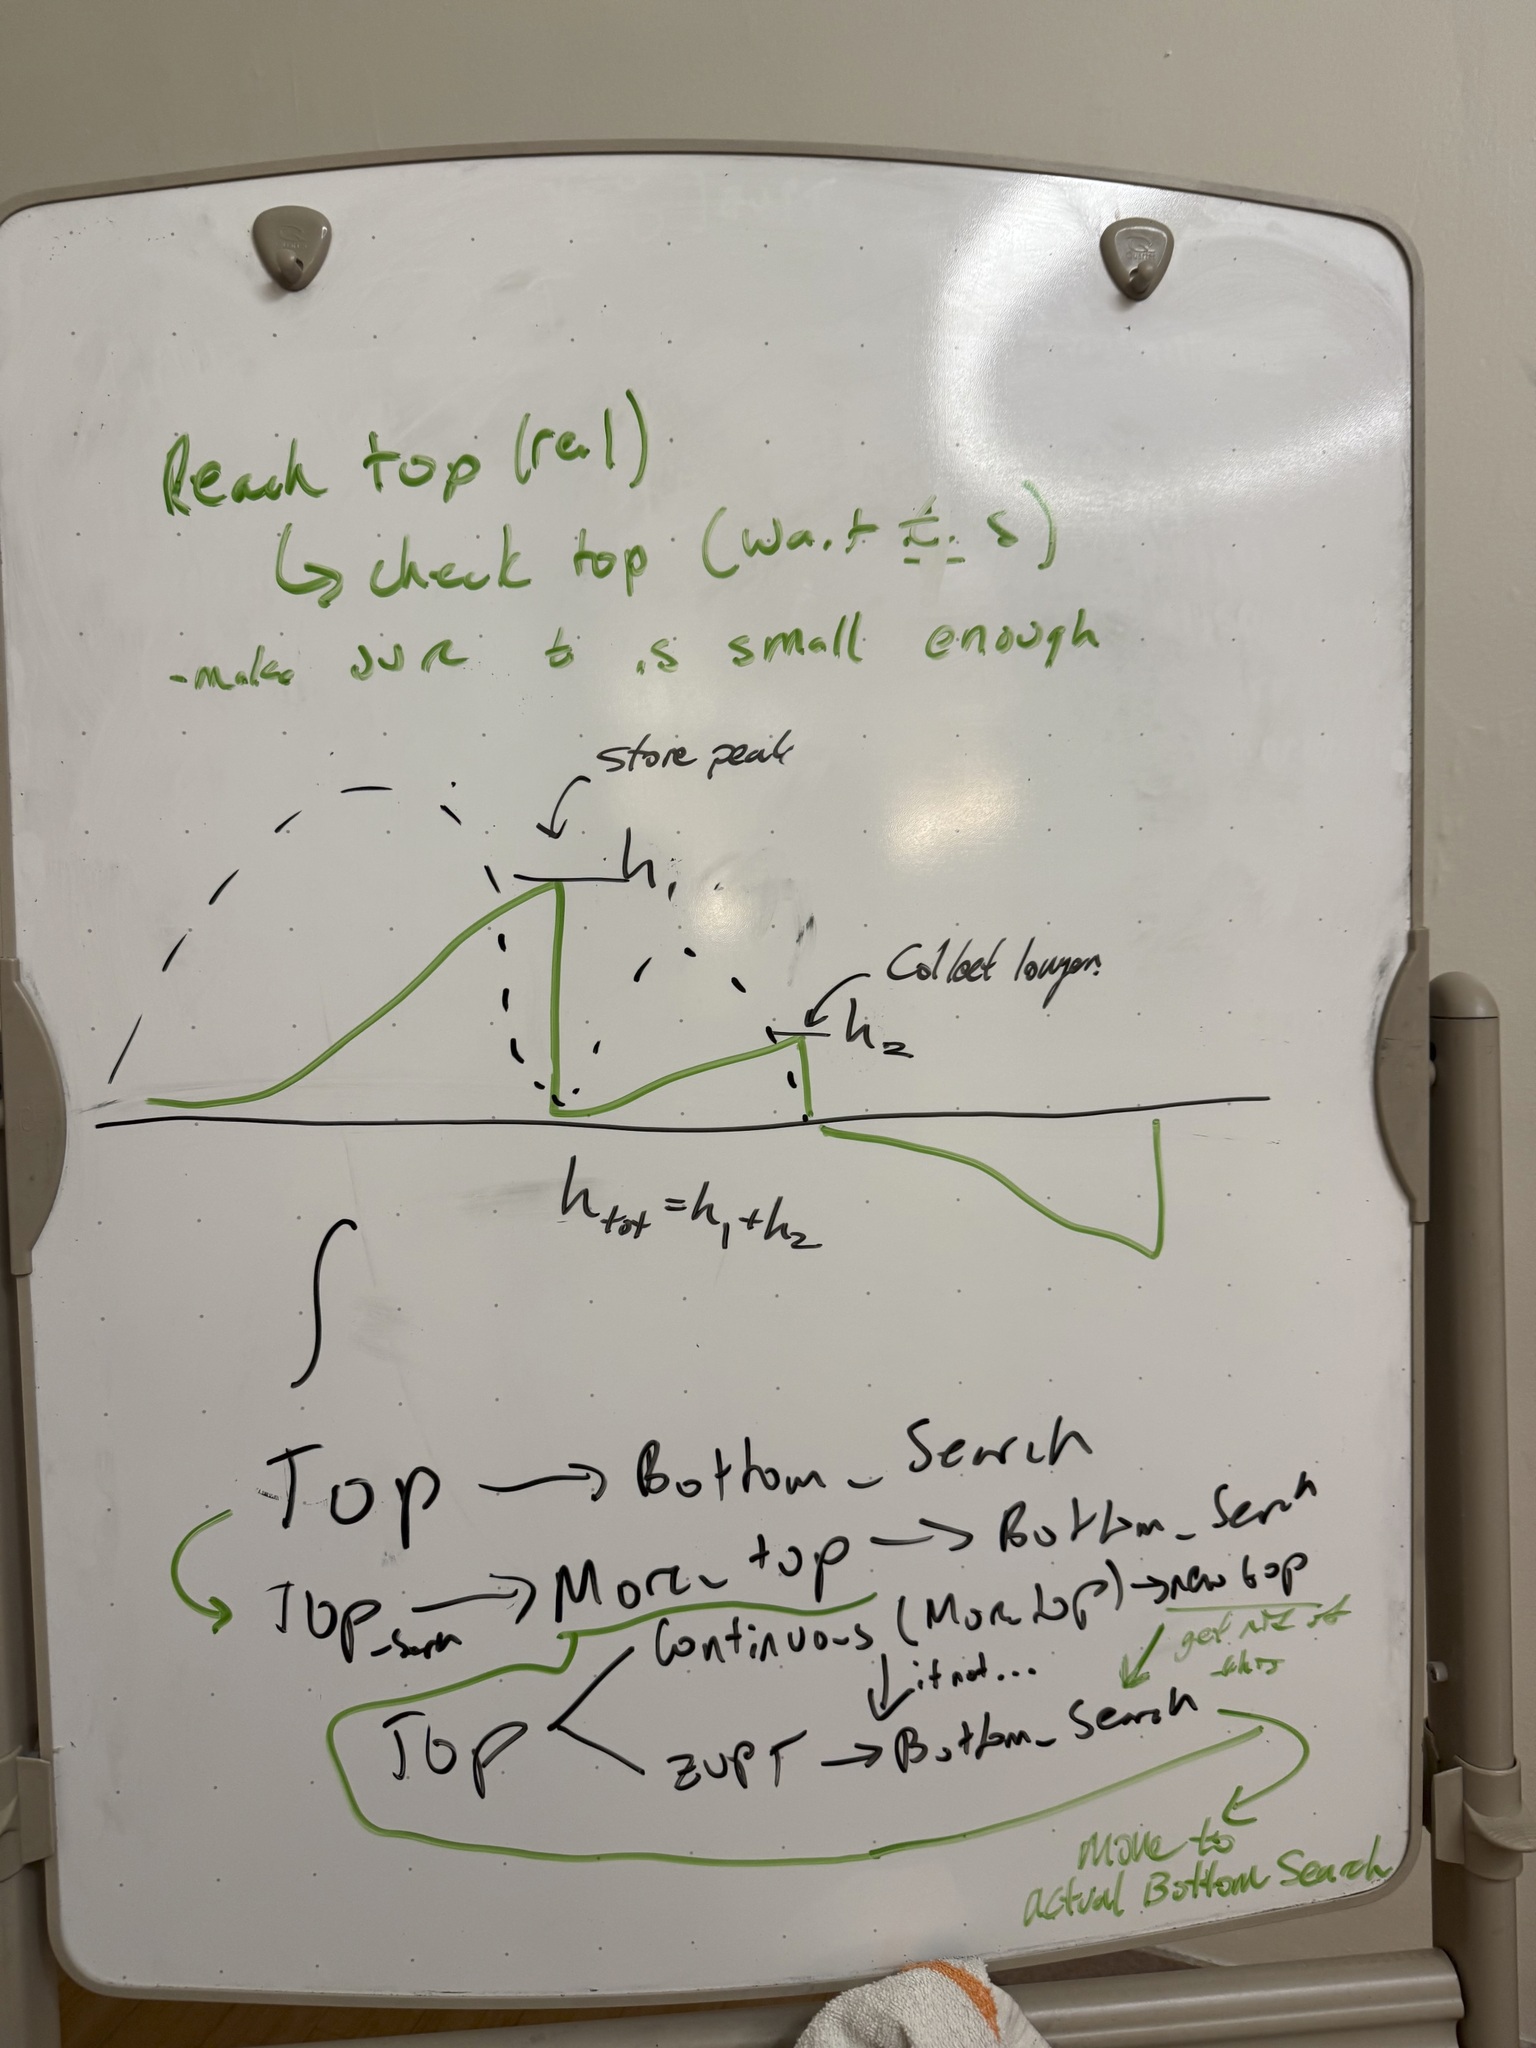 Reach top (real)
↳ check top (wait t s)
- make sure t is small enough
store peak
h₁
Collect longer
h₂
h_tot = h₁ + h₂
∫
Top → Bottom_Search
Top_Search → More_top → Bottom_Search
Continuous (More top) → new top
if not...
get rid of
this
Top
ZUPT → Bottom_Search
Move to
actual Bottom Search